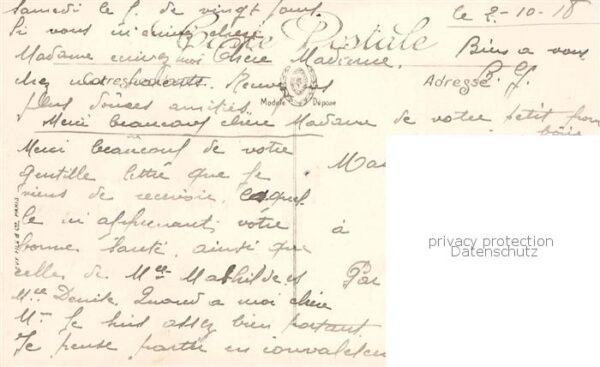 samedi le 5. de vingt jours
le 2-10-18
Si vous m'ecrivez chère
Carte Postale
Madame ecrivez moi Chère Madame.
Biens a vous
chez mes parents. Recevez
Correspondance
Adresse
B. G.
plus douces amitiés
Modèle Déposé
Merci beaucoup chère Madame de votre petit
Merci beaucoup de votre
gentille lettre que je
viens de recevoir.
Ma
le m'apprenant votre
à
bonne santé, ainsi que
celles de Mlle Mathilde et
Par
Mlle Denise Quand a moi chère
Me Je suis assez bien portant
Je pense partir en convalescen
PARIS
privacy protection
Datenschutz